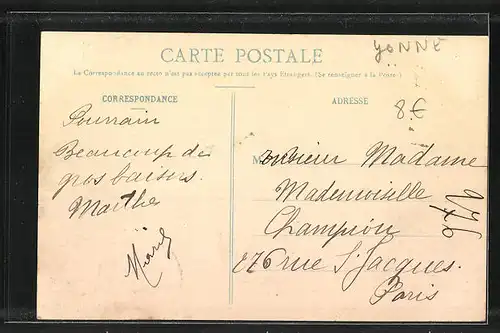 YONNE
CARTE POSTALE
La Correspondance au recto n'est pas acceptée par tous les Pays Etrangers. (Se renseigner à la Poste.)
CORRESPONDANCE
ADRESSE
8€
Pourrain
Beaucoup de
gros baisers.
Marthe
Marie
Monsieur Madame
Mademoiselle
Champion
276 rue St Jacques.
Paris
276